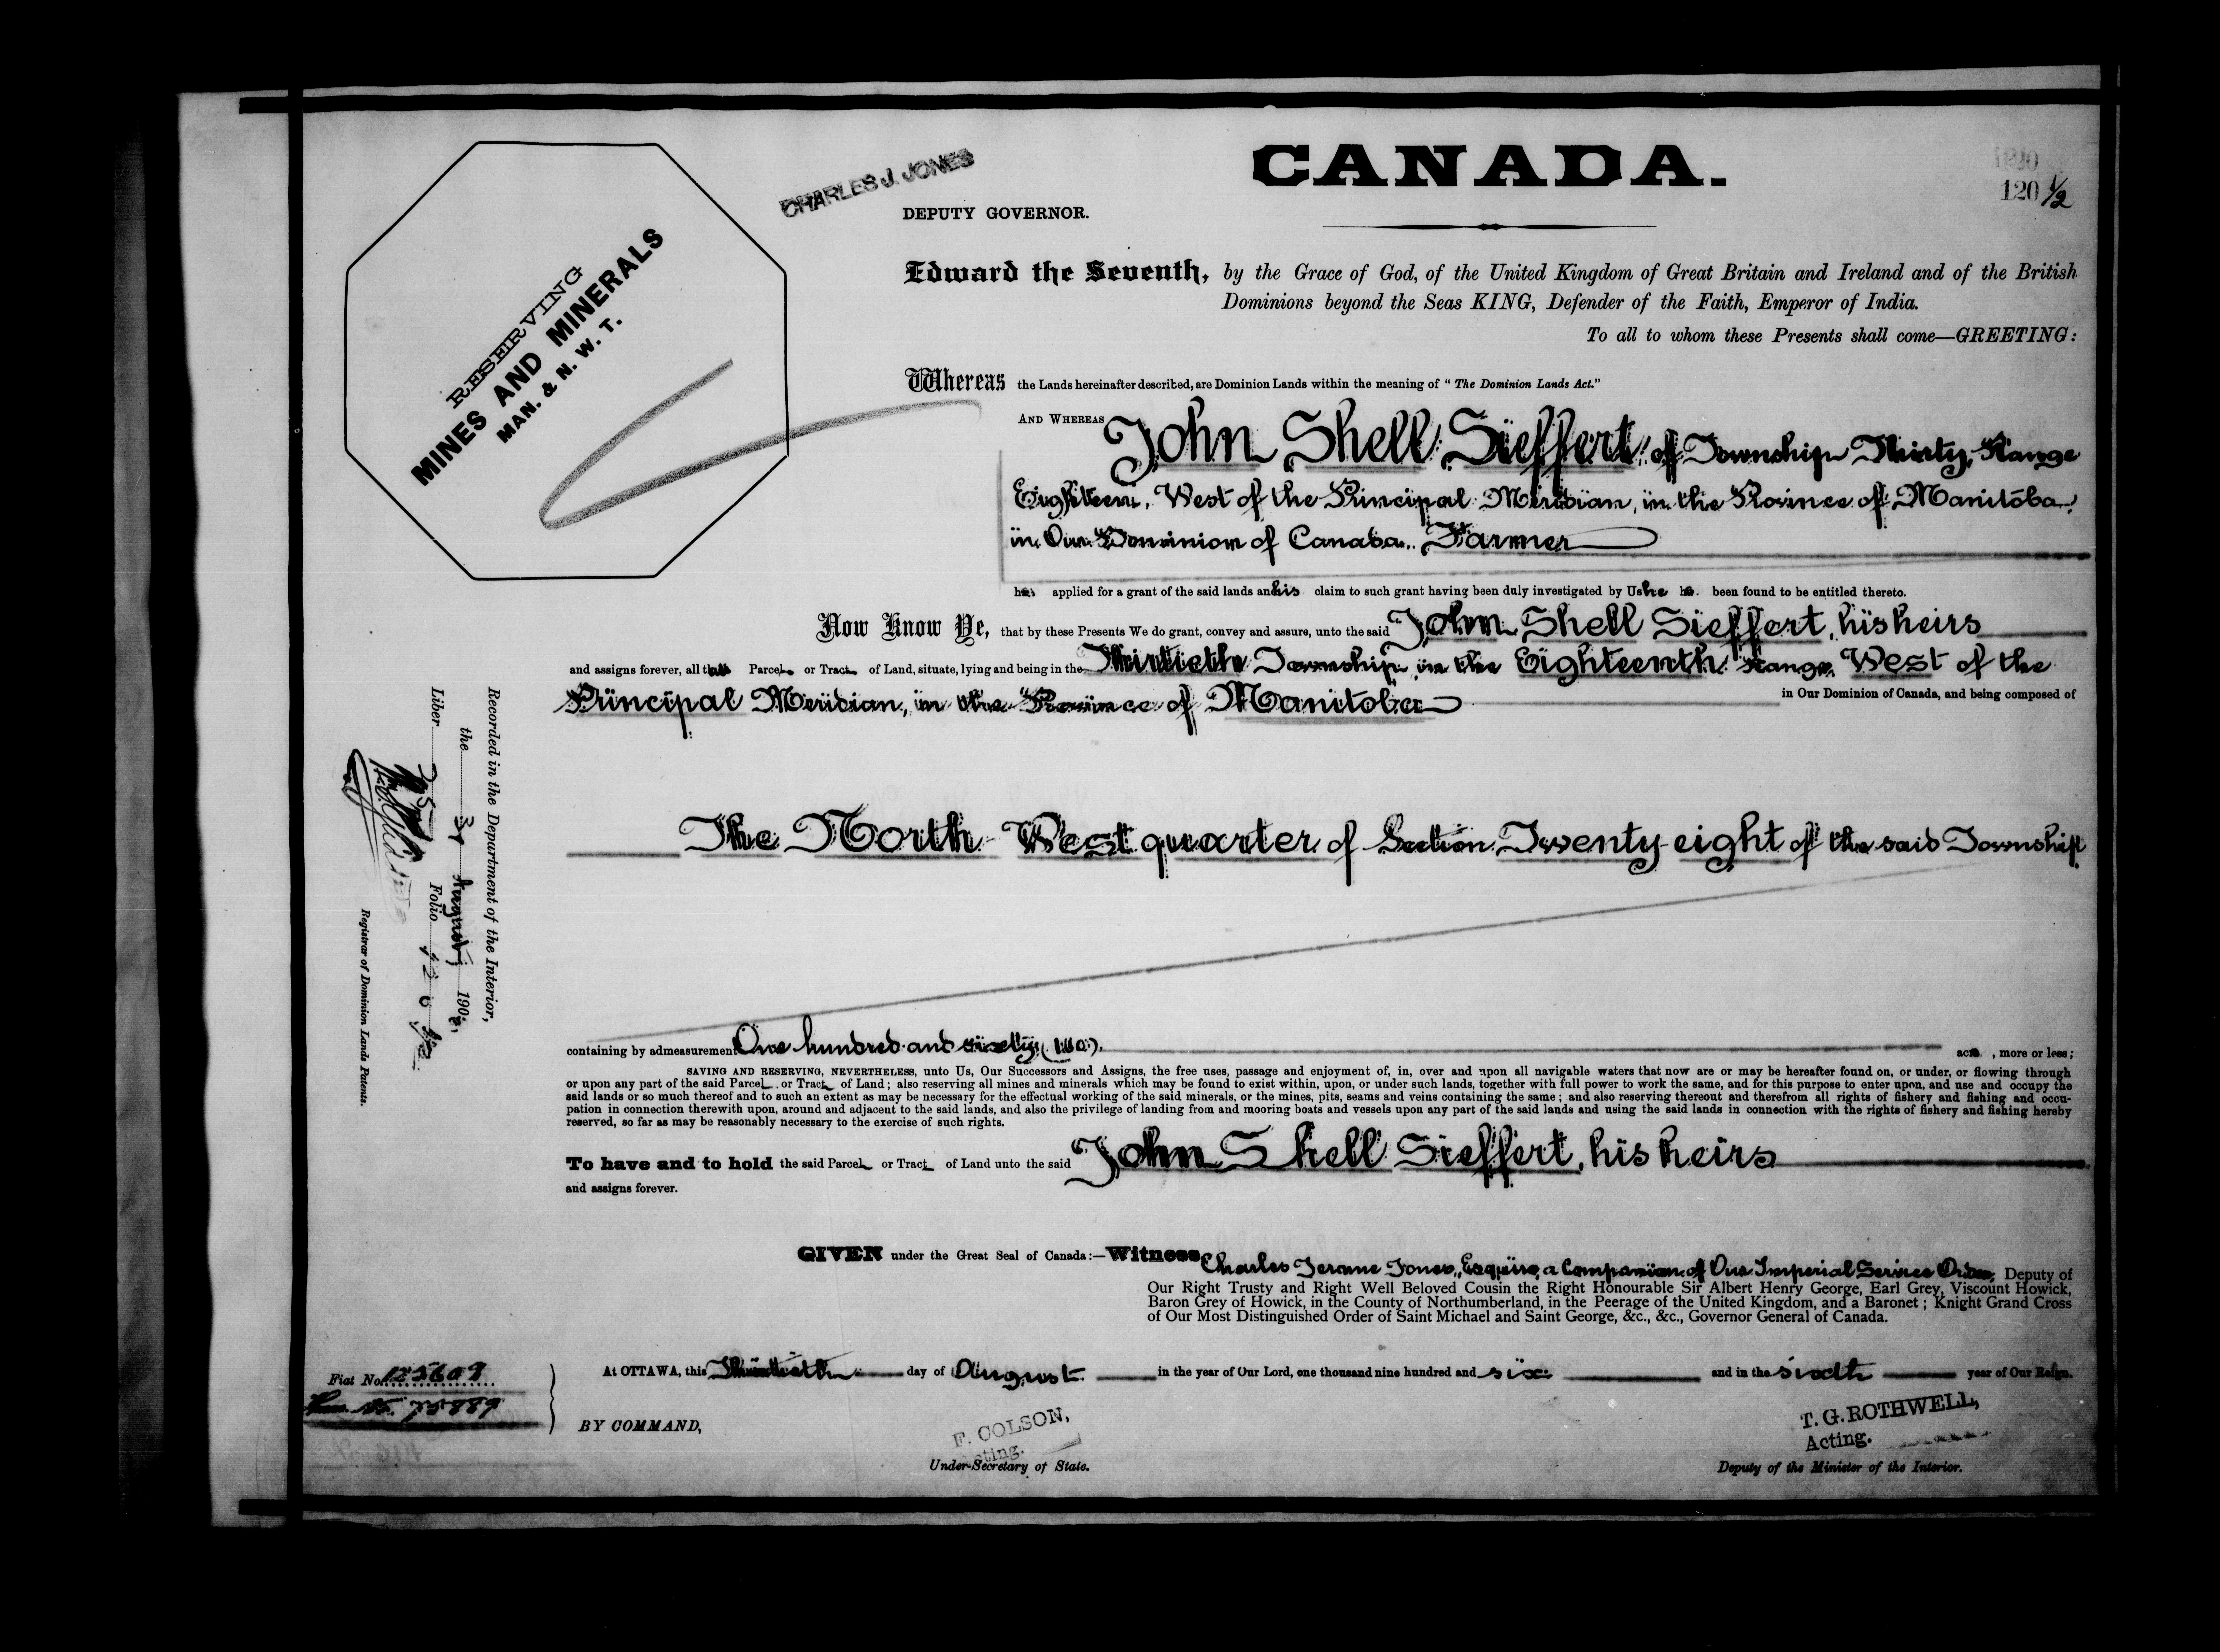 CANADA.
120 1/2
CHARLES J. JONES
DEPUTY GOVERNOR.
RESERVING
MINES AND MINERALS
MAN. & N. W. T.
Edward the Seventh, by the Grace of God, of the United Kingdom of Great Britain and Ireland and of the British
Dominions beyond the Seas KING, Defender of the Faith, Emperor of India.
To all to whom these Presents shall come—GREETING:
Whereas the Lands hereinafter described, are Dominion Lands within the meaning of "The Dominion Lands Act."
AND WHEREAS John Shell Sieffert, of Township Thirty, Range
Eighteen, West of the Principal Meridian, in the Province of Manitoba,
in Our Dominion of Canada, Farmer
has applied for a grant of the said lands and his claim to such grant having been duly investigated by Us he has been found to be entitled thereto.
Now Know Ye, that by these Presents We do grant, convey and assure, unto the said John Shell Sieffert, his heirs
and assigns forever, all that Parcel or Tract of Land, situate, lying and being in the Thirtieth Township, in the Eighteenth Range, West of the
Principal Meridian, in the Province of Manitoba in Our Dominion of Canada, and being composed of
The North West quarter of Section Twenty-eight of the said Township
containing by admeasurement One hundred and sixty (160) acres, more or less;
SAVING AND RESERVING, NEVERTHELESS, unto Us, Our Successors and Assigns, the free uses, passage and enjoyment of, in, over and upon all navigable waters that now are or may be hereafter found on, or under, or flowing through
or upon any part of the said Parcel or Tract of Land; also reserving all mines and minerals which may be found to exist within, upon, or under such lands, together with full power to work the same, and for this purpose to enter upon, and use and occupy the
said lands or so much thereof and to such an extent as may be necessary for the effectual working of the said minerals, or the mines, pits, seams and veins containing the same; and also reserving thereout and therefrom all rights of fishery and fishing and occu-
pation in connection therewith upon, around and adjacent to the said lands, and also the privilege of landing from and mooring boats and vessels upon any part of the said lands and using the said lands in connection with the rights of fishery and fishing hereby
reserved, so far as may be reasonably necessary to the exercise of such rights.
To have and to hold the said Parcel or Tract of Land unto the said John Shell Sieffert, his heirs
and assigns forever.
GIVEN under the Great Seal of Canada:—Witness Charles Jerome Jones, Esquire, a Companion of Our Imperial Service Order, Deputy of
Our Right Trusty and Right Well Beloved Cousin the Right Honourable Sir Albert Henry George, Earl Grey, Viscount Howick,
Baron Grey of Howick, in the County of Northumberland, in the Peerage of the United Kingdom, and a Baronet; Knight Grand Cross
of Our Most Distinguished Order of Saint Michael and Saint George, &c., &c., Governor General of Canada.
At OTTAWA, this Thirtieth day of August in the year of Our Lord, one thousand nine hundred and six and in the sixth year of Our Reign.
BY COMMAND,
F. COLSON,
Acting.
Under-Secretary of State.
T. G. ROTHWELL,
Acting.
Deputy of the Minister of the Interior.
Fiat No. 125609
Recorded in the Department of the Interior,
the 31 August, 190
Liber Folio 120 1/2
Registrar of Dominion Lands Patents.